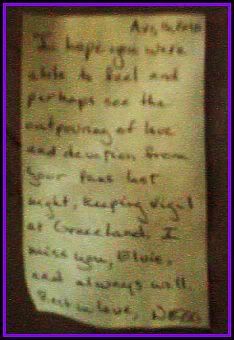 I hope you were
able to feel and
perhaps see the
outpouring of love
and devotion from
your fans last
night, keeping vigil
at Graceland. I
miss you, Elvis,
and always will.
love,